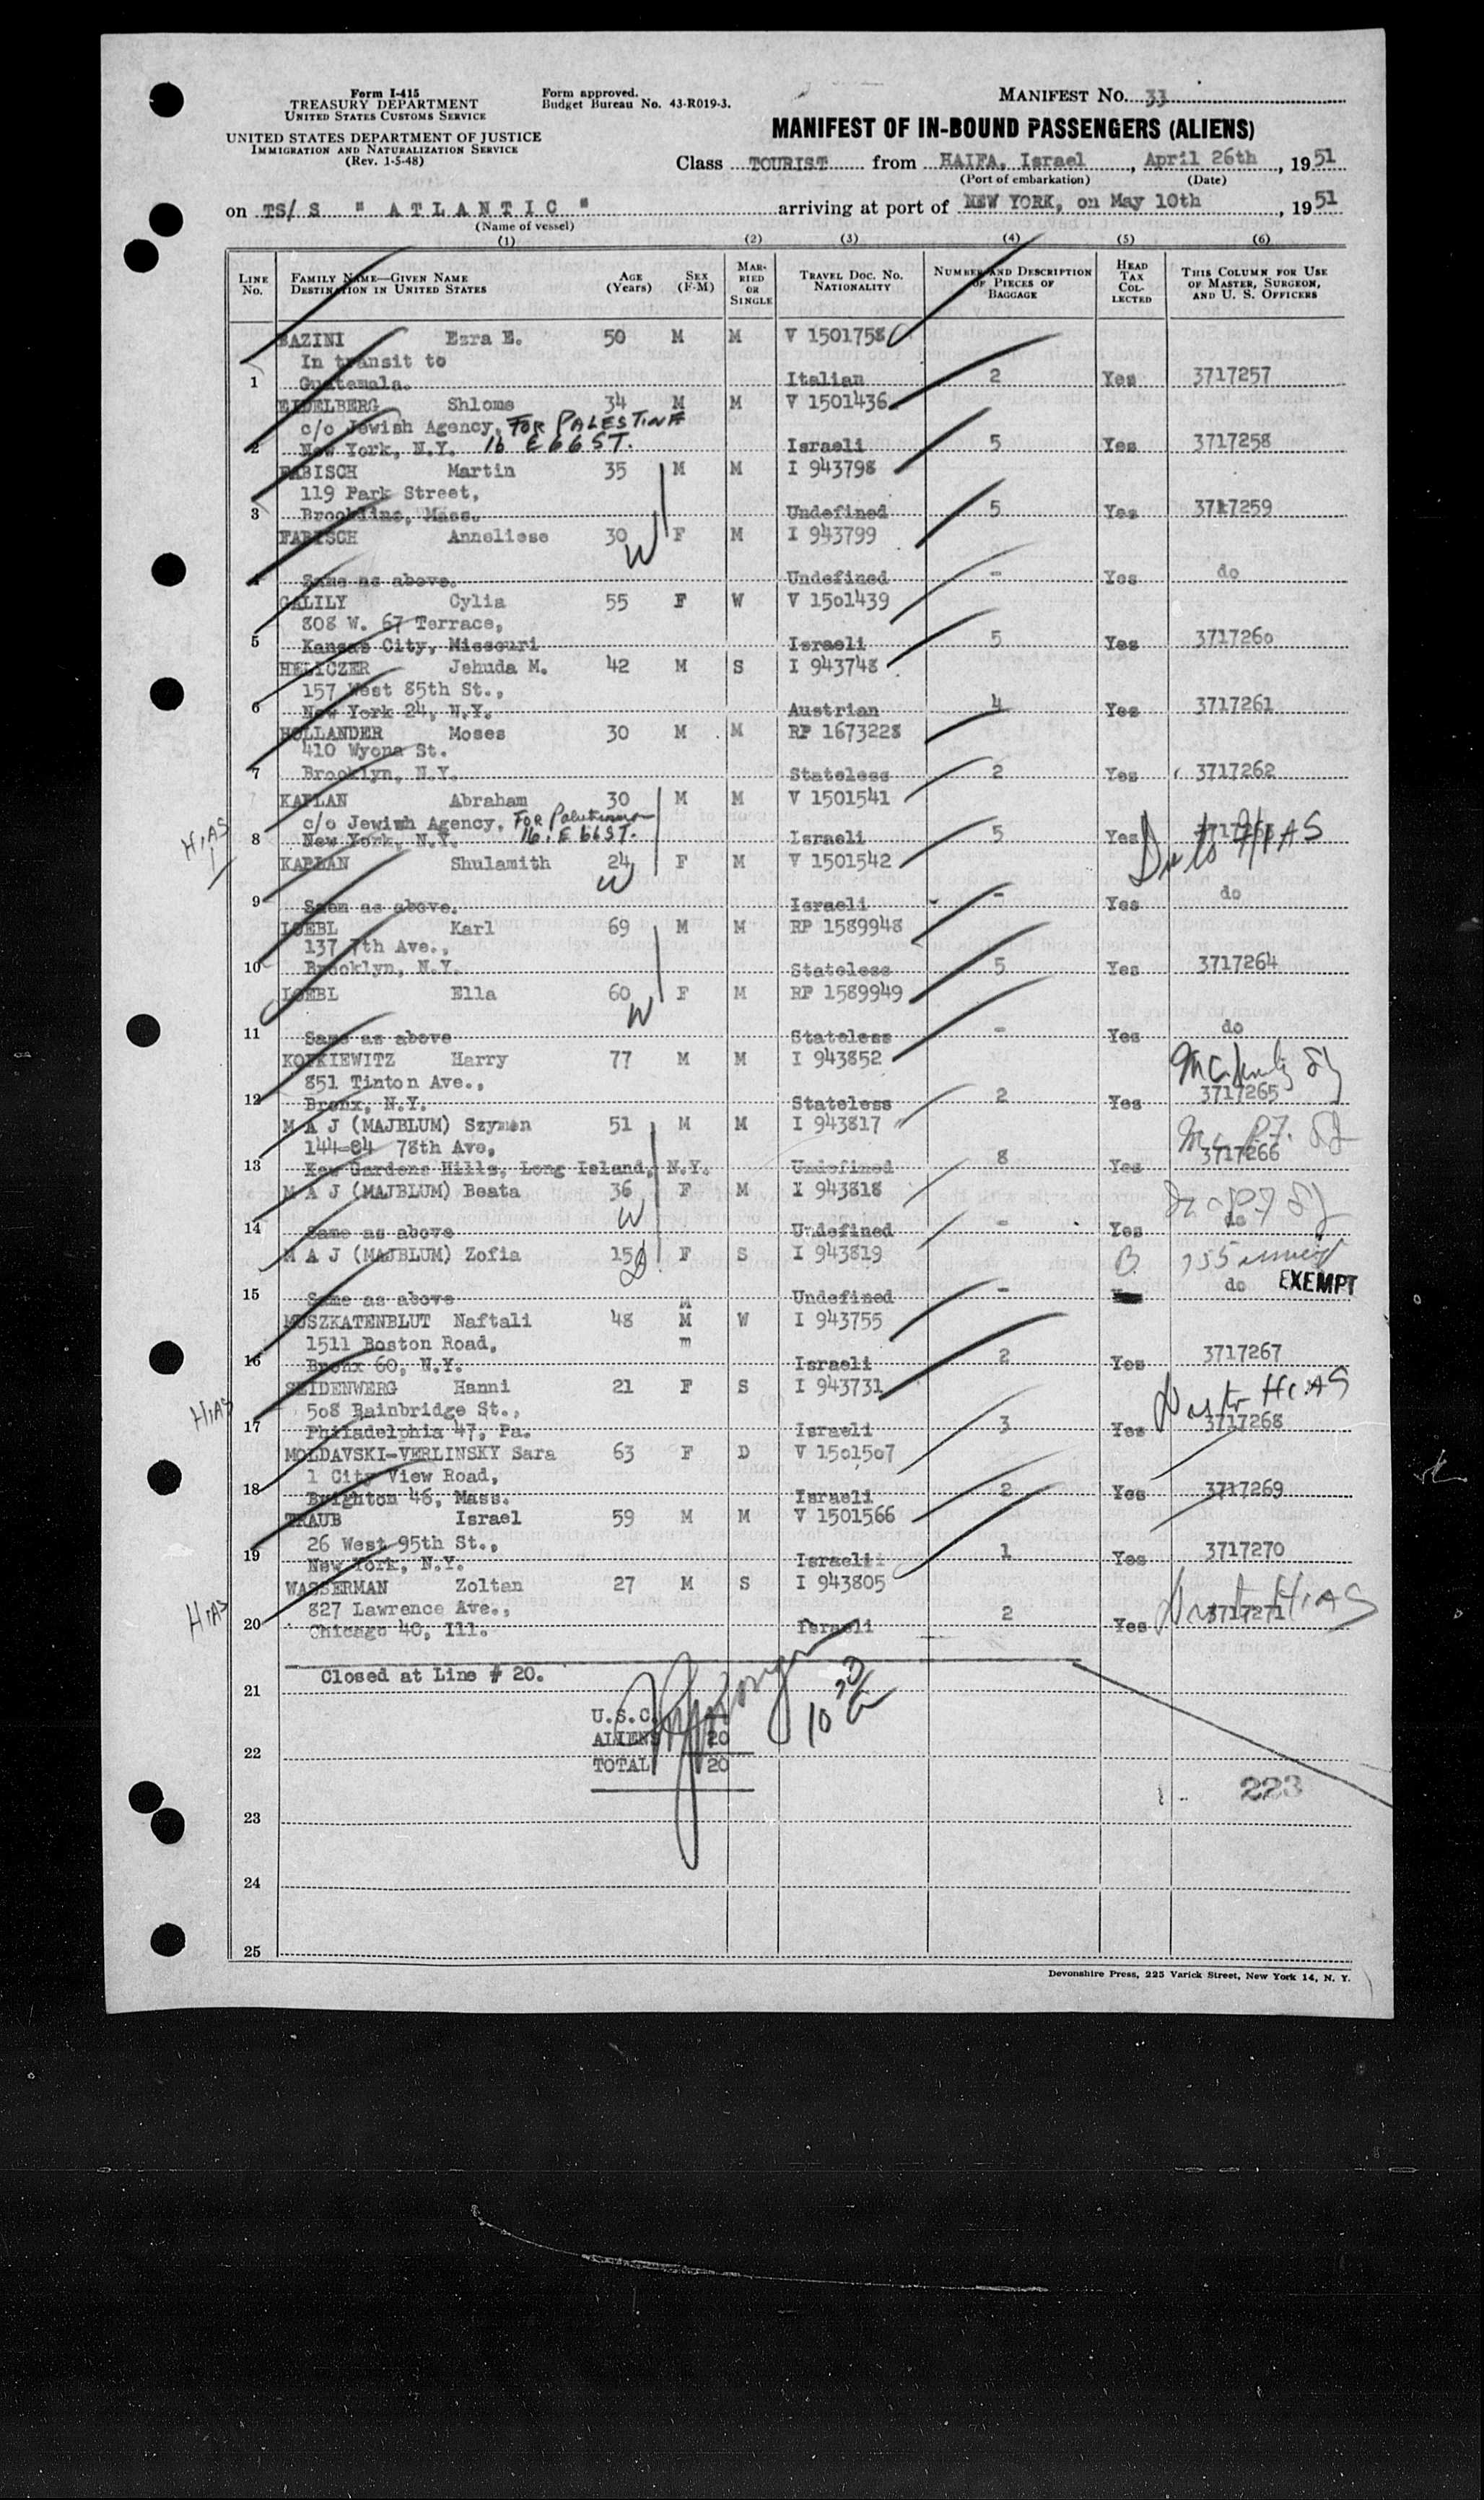 Form I-415
TREASURY DEPARTMENT
UNITED STATES CUSTOMS SERVICE
UNITED STATES DEPARTMENT OF JUSTICE
IMMIGRATION AND NATURALIZATION SERVICE
(Rev. 1-5-48)
Form approved.
Budget Bureau No. 43-R019-3.
MANIFEST NO. 33
MANIFEST OF IN-BOUND PASSENGERS (ALIENS)
Class TOURIST from HAIFA, Israel, April 26th, 1951
(Port of embarkation) (Date)
on TS/S "ATLANTIC" arriving at port of NEW YORK, on May 10th, 1951
(Name of vessel)
(1) (2) (3) (4) (5) (6)
LINE NO. FAMILY NAME—GIVEN NAME DESTINATION IN UNITED STATES AGE (Years) SEX (F-M) MARRIED OR SINGLE TRAVEL DOC. NO. NATIONALITY NUMBER AND DESCRIPTION OF PIECES OF BAGGAGE HEAD TAX COLLECTED THIS COLUMN FOR USE OF MASTER, SURGEON, AND U. S. OFFICERS
BAZINI Ezra E. 50 M M V 1501758
In transit to
1 Guatemala. Italian 2 Yes 3717257
EIDELBERG Shlome 34 M M V 1501436
c/o Jewish Agency, FOR PALESTINE
2 New York, N.Y. 16 E 66 ST. Israeli 5 Yes 3717258
FABISCH Martin 35 M M I 943798
119 Park Street,
3 Brookline, Mass. Undefined 5 Yes 3717259
FABISCH Anneliese 30 W F M I 943799
4 Same as above. Undefined - Yes do
GALILY Cylia 55 F W V 1501439
808 W. 67 Terrace,
5 Kansas City, Missouri Israeli 5 Yes 3717260
HELICZER Jehuda M. 42 M S I 943748
157 West 85th St.,
6 New York 24, N.Y. Austrian 4 Yes 3717261
HOLLANDER Moses 30 M M RP 1673228
410 Wyona St.
7 Brooklyn, N.Y. Stateless 2 Yes 3717262
KAPLAN Abraham 30 M M V 1501541
c/o Jewish Agency, FOR Palestine
HIAS 8 New York, N.Y. 16. E 66 ST. Israeli 5 Yes HIAS
KAPLAN Shulamith 24 W F M V 1501542
9 Saem as above. Israeli - Yes do
LOEBL Karl 69 M M RP 1589948
137 7th Ave.,
10 Brooklyn, N.Y. Stateless 5 Yes 3717264
LOEBL Ella 60 W F M RP 1589949
11 Same as above Stateless - Yes do
KOPKIEWITZ Harry 77 M M I 943852
851 Tinton Ave.,
12 Bronx, N.Y. Stateless 2 Yes 3717265
M A J (MAJBLUM) Szymon 51 M M I 943817
144-84 78th Ave,
13 Kew Gardens Hills, Long Island, N.Y. Undefined 8 Yes 3717266
M A J (MAJBLUM) Beata 36 W F M I 943818
14 Same as above Undefined - Yes do
M A J (MAJBLUM) Zofia 15 D F S I 943819 B.
15 Same as above Undefined - do EXEMPT
MUSZKATENBLUT Naftali 48 M W I 943755
1511 Boston Road, m
16 Bronx 60, N.Y. Israeli 2 Yes 3717267
SEIDENWERG Hanni 21 F S I 943731 HIAS
508 Bainbridge St.,
HIAS 17 Philadelphia 47, Pa. Israeli 3 Yes 3717268
MOLDAVSKI-VERLINSKY Sara 63 F D V 1501507
1 City View Road,
18 Brighton 46, Mass. Israeli 2 Yes 3717269
TRAUB Israel 59 M M V 1501566
26 West 95th St.,
19 New York, N.Y. Israeli 1 Yes 3717270
WASSERMAN Zoltan 27 M S I 943805
827 Lawrence Ave.,
HIAS 20 Chicago 40, Ill. Israeli 2 Yes 3717271 HIAS
Closed at Line # 20.
21
U.S.C. -
ALIENS 20
22
TOTAL 20
223
23
24
25
Devonshire Press, 225 Varick Street, New York 14, N. Y.